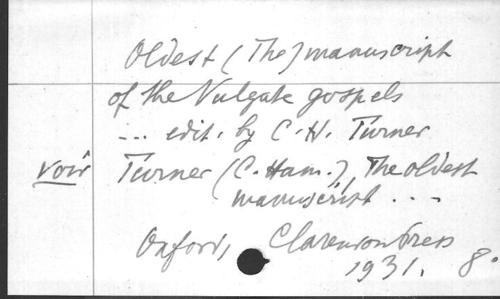 Oldest (The) manuscript
of the Vulgate gospels
... edit. by C.H. Turner
voir Turner (C. Ham.), The oldest
manuscript ...
Oxford, Clarendon Press
1931. 8°